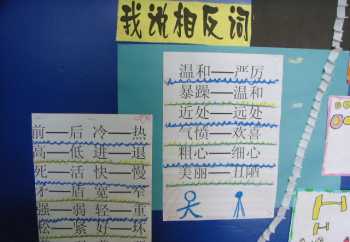 我说相反词
温和—严厉
暴躁—温和
近处—远处
气愤—欢喜
粗心—细心
美丽—丑陋
前—后 冷—热
高—低 进—退
死—活 快—慢
矛—盾 宽—窄
强—弱 轻—重
松—紧 好—坏